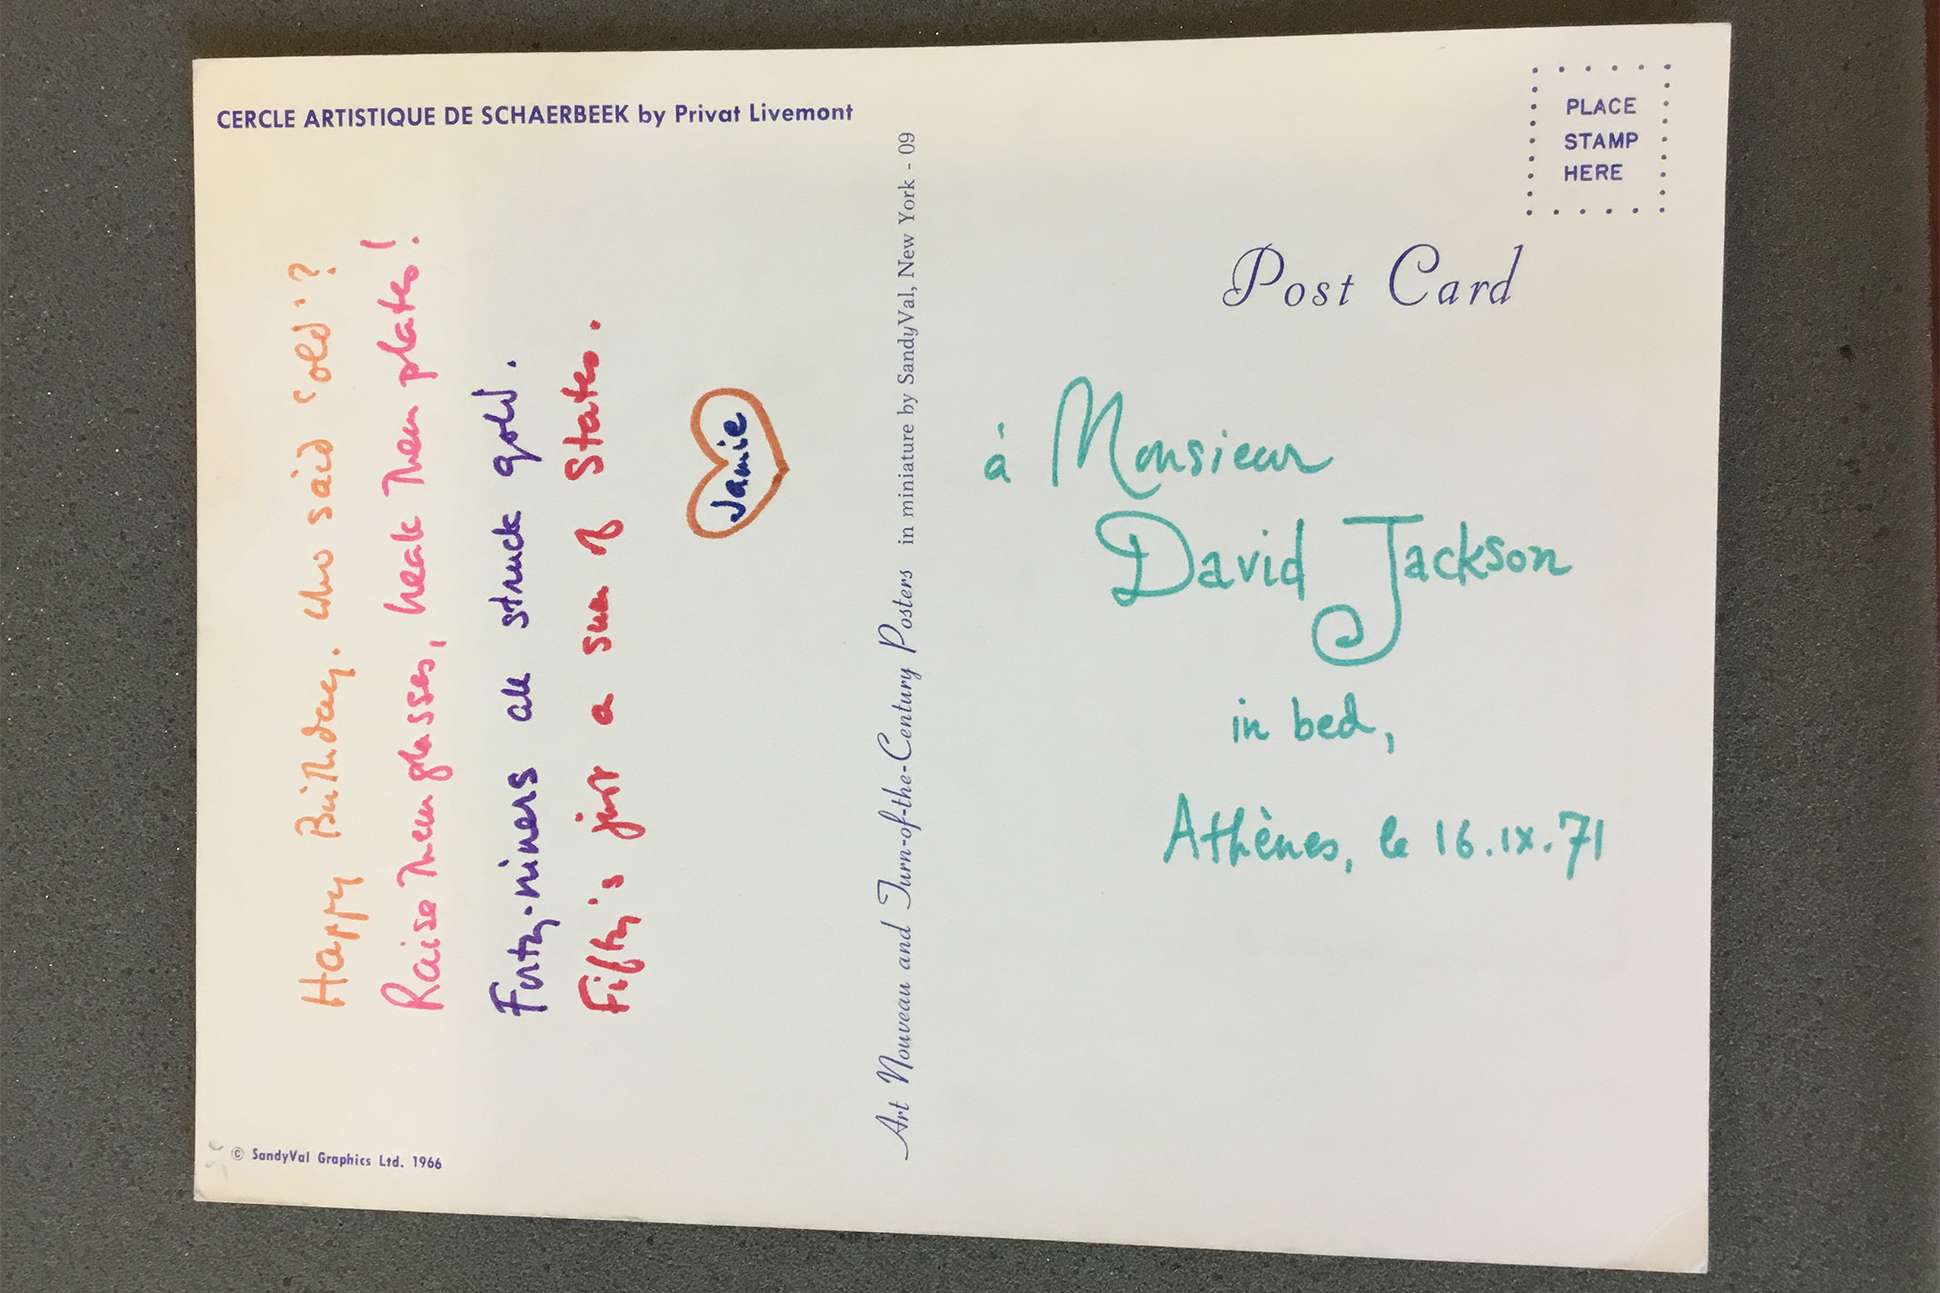 CERCLE ARTISTIQUE DE SCHAERBEEK by Privat Livemont
Happy Birthday. Who said 'old'?
Raise them glasses, heat them plates!
Forty-niners all struck gold.
Fifty's just a sum of States.
Jamie
© SandyVal Graphics Ltd. 1966
Art Nouveau and Turn-of-the-Century Posters in miniature by SandyVal, New York - 09
PLACE
STAMP
HERE
Post Card
à Monsieur
David Jackson
in bed,
Athènes, le 16.ix.71